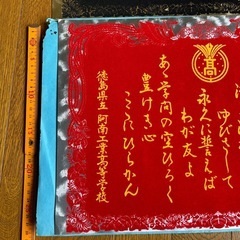 高
ゆびさして
永久に誓えば
わが友よ
あゝ学問の空ひろく
豊けき心
ここにひらかん
徳島県立 阿南工業高等学校